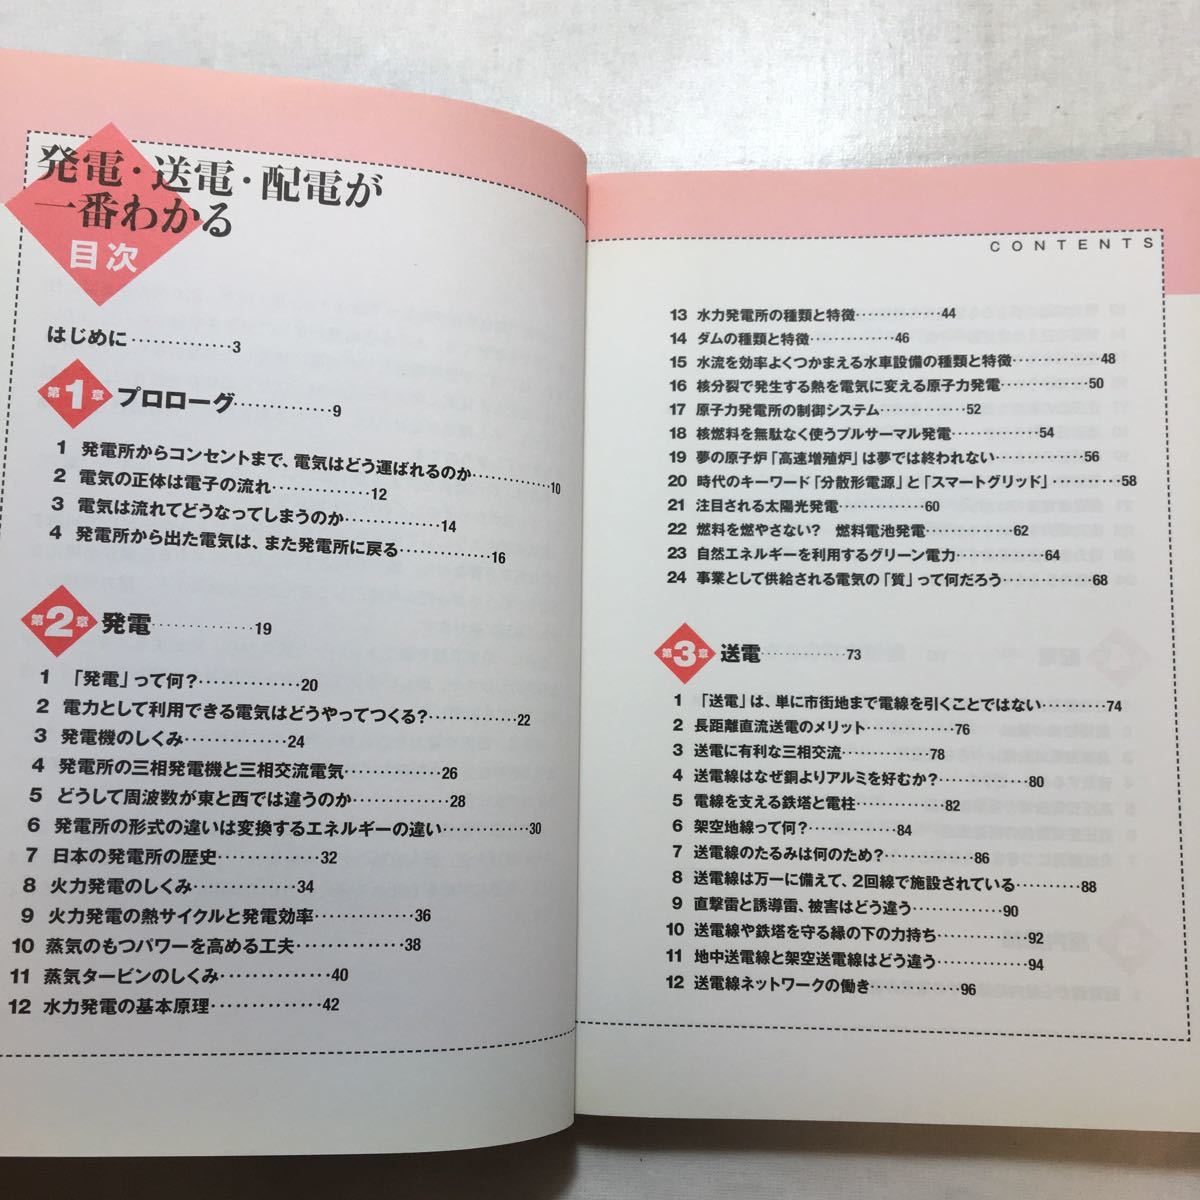 発電・送電・配電が
一番わかる
目次
はじめに…………3
第1章 プロローグ…………9
1 発電所からコンセントまで、電気はどう運ばれるのか…………10
2 電気の正体は電子の流れ…………12
3 電気は流れてどうなってしまうのか…………14
4 発電所から出た電気は、また発電所に戻る…………16
第2章 発電…………19
1 「発電」って何?…………20
2 電力として利用できる電気はどうやってつくる?…………22
3 発電機のしくみ…………24
4 発電所の三相発電機と三相交流電気…………26
5 どうして周波数が東と西では違うのか…………28
6 発電所の形式の違いは変換するエネルギーの違い…………30
7 日本の発電所の歴史…………32
8 火力発電のしくみ…………34
9 火力発電の熱サイクルと発電効率…………36
10 蒸気のもつパワーを高める工夫…………38
11 蒸気タービンのしくみ…………40
12 水力発電の基本原理…………42
CONTENTS
13 水力発電所の種類と特徴…………44
14 ダムの種類と特徴…………46
15 水流を効率よくつかまえる水車設備の種類と特徴…………48
16 核分裂で発生する熱を電気に変える原子力発電…………50
17 原子力発電所の制御システム…………52
18 核燃料を無駄なく使うプルサーマル発電…………54
19 夢の原子炉「高速増殖炉」は夢では終われない…………56
20 時代のキーワード「分散形電源」と「スマートグリッド」…………58
21 注目される太陽光発電…………60
22 燃料を燃やさない? 燃料電池発電…………62
23 自然エネルギーを利用するグリーン電力…………64
24 事業として供給される電気の「質」って何だろう…………68
第3章 送電…………73
1 「送電」は、単に市街地まで電線を引くことではない…………74
2 長距離直流送電のメリット…………76
3 送電に有利な三相交流…………78
4 送電線はなぜ銅よりアルミを好むか?…………80
5 電線を支える鉄塔と電柱…………82
6 架空地線って何?…………84
7 送電線のたるみは何のため?…………86
8 送電線は万一に備えて、2回線で施設されている…………88
9 直撃雷と誘導雷、被害はどう違う…………90
10 送電線や鉄塔を守る縁の下の力持ち…………92
11 地中送電線と架空送電線はどう違う…………94
12 送電線ネットワークの働き…………96